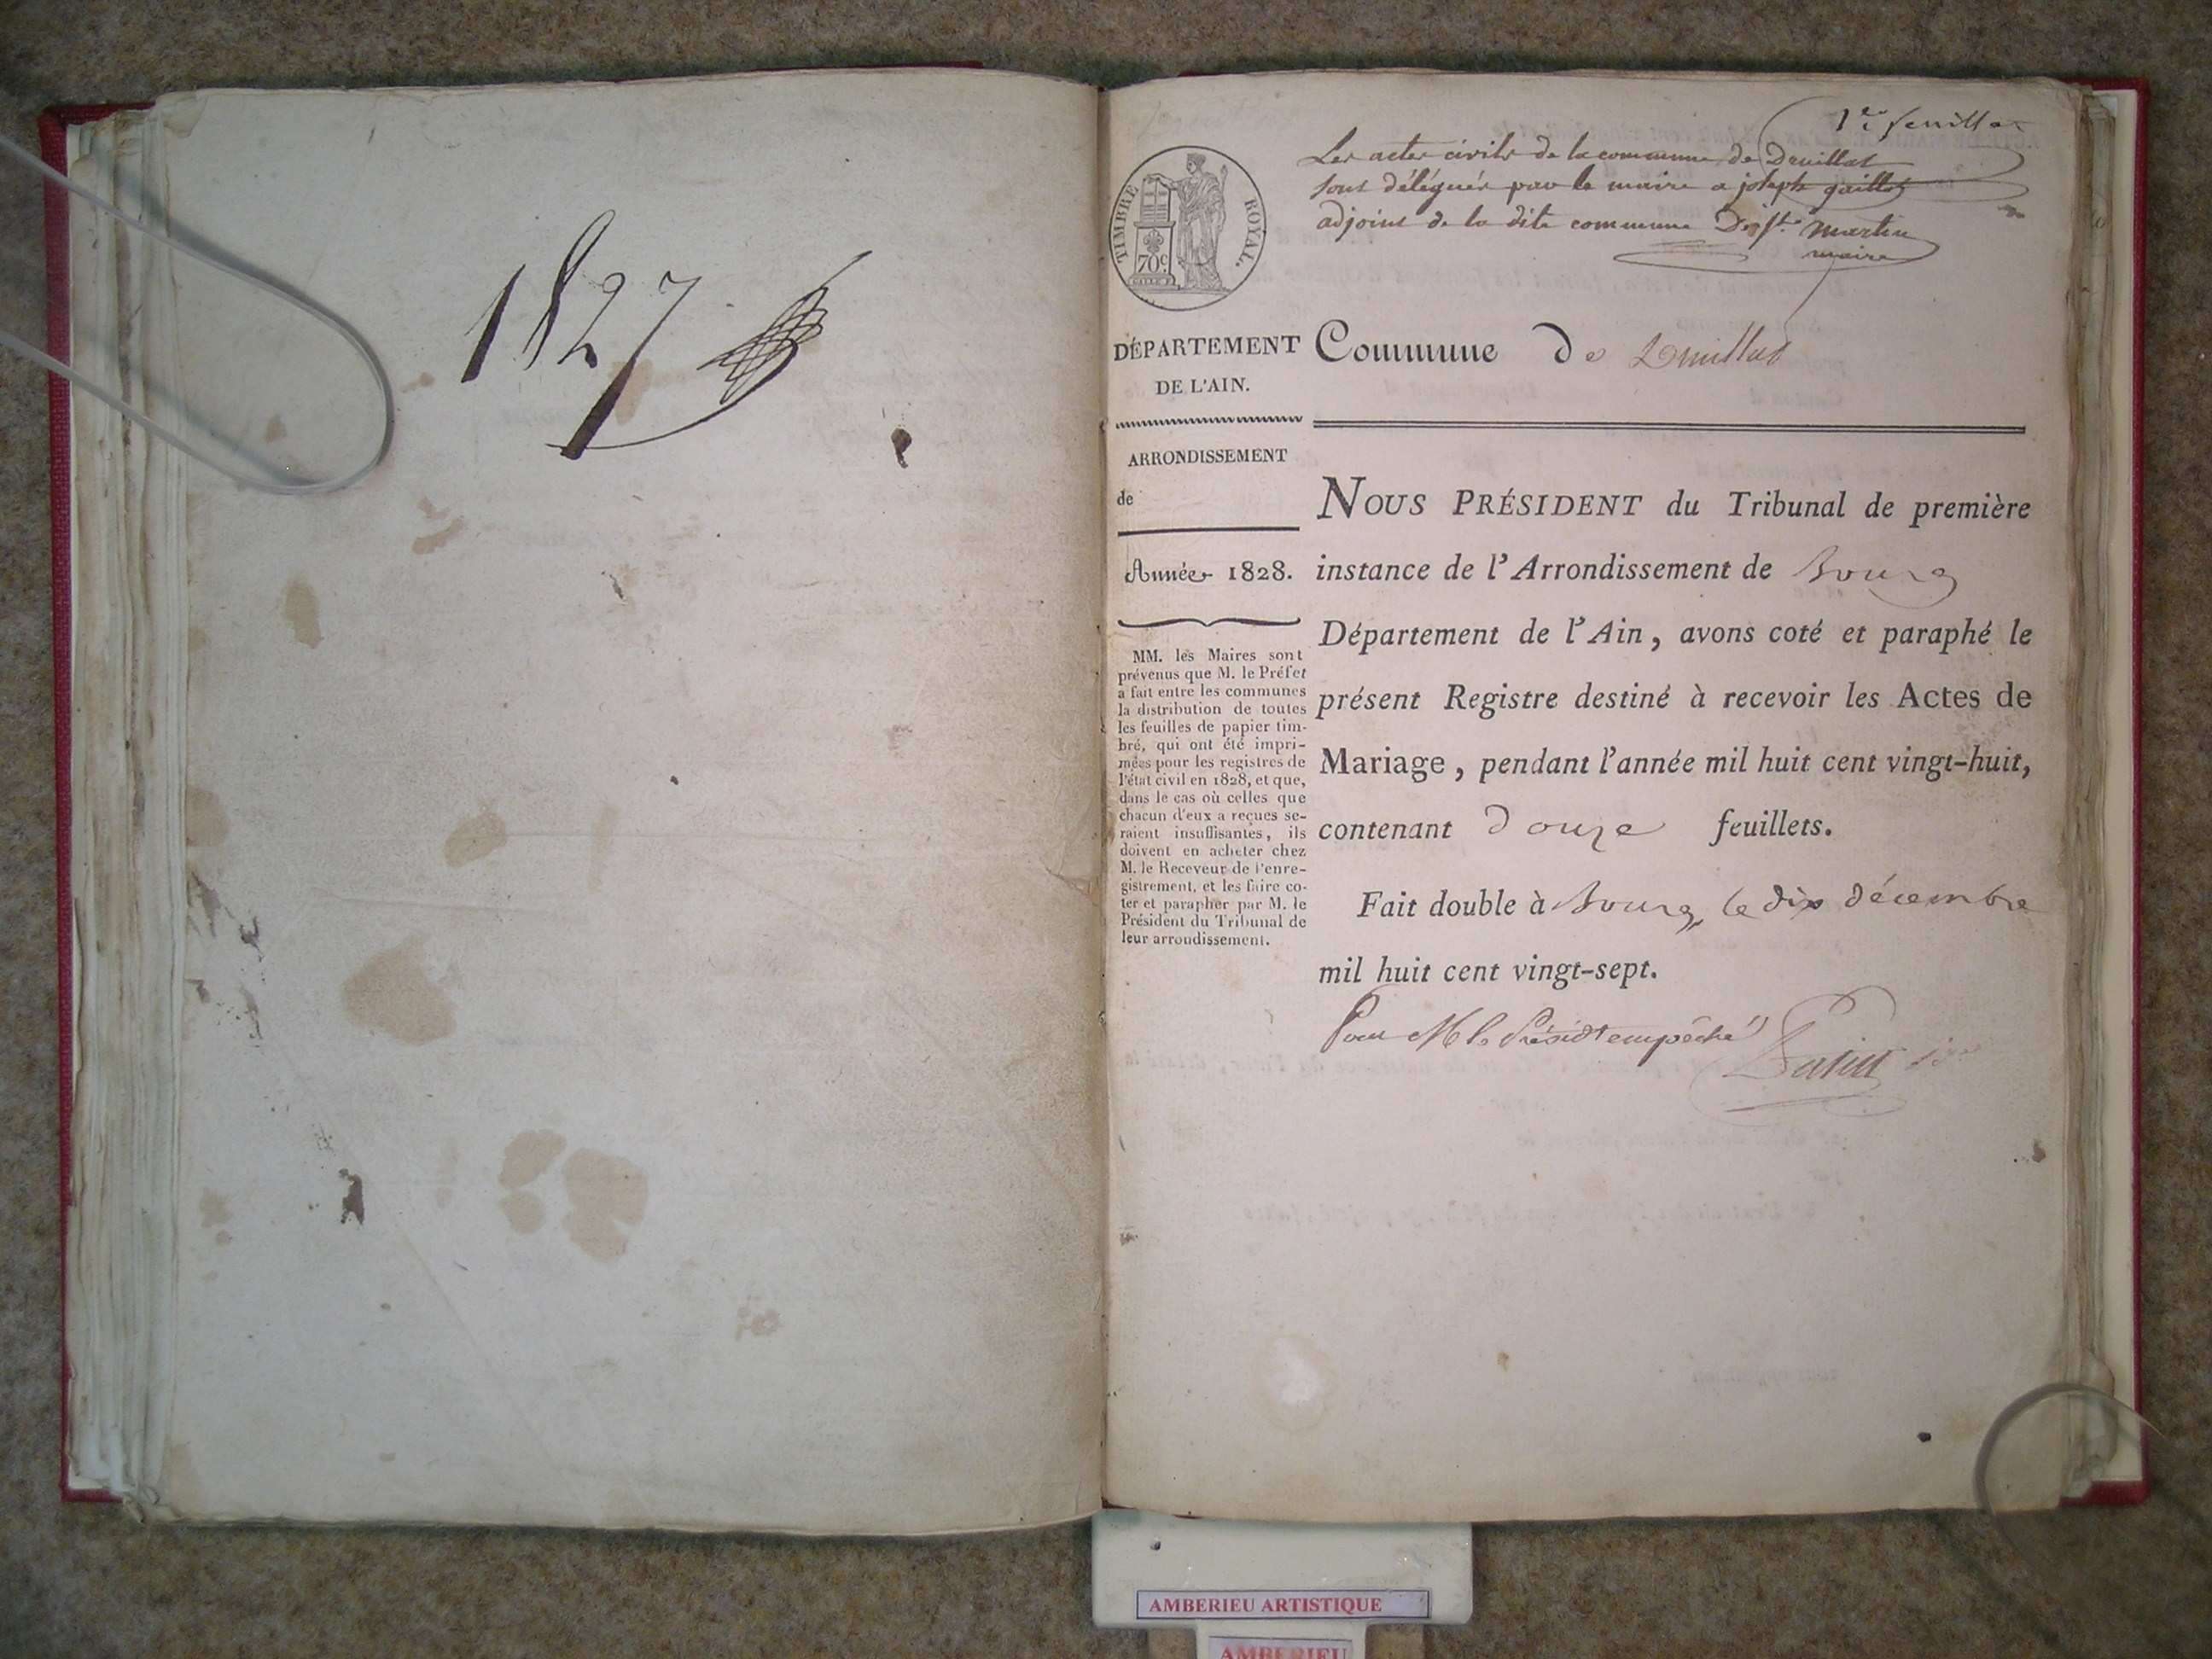 1827
1er feuillet
Les actes civils de la commune de Druillat
sont délégués par le maire a joseph gaillot
adjoint de la dite commune Martin
maire
TIMBRE ROYAL.
70c.
DÉPARTEMENT
DE L'AIN.
Commune de Druillat
ARRONDISSEMENT
de
Année 1828.
MM. les Maires sont
prévenus que M. le Préfet
a fait entre les communes
la distribution de toutes
les feuilles de papier tim-
bré, qui ont été impri-
mées pour les registres de
l'état civil en 1828, et que,
dans le cas où celles que
chacun d'eux a reçues se-
raient insuffisantes, ils
doivent en acheter chez
M. le Receveur de l'enre-
gistrement, et les faire co-
ter et parapher par M. le
Président du Tribunal de
leur arrondissement.
NOUS PRÉSIDENT du Tribunal de première
instance de l'Arrondissement de Bourg
Département de l'Ain, avons coté et paraphé le
présent Registre destiné à recevoir les Actes de
Mariage, pendant l'année mil huit cent vingt-huit,
contenant douze feuillets.
Fait double à Bourg, le dix décembre
mil huit cent vingt-sept.
Pour M. le Présidt empêché
AMBERIEU ARTISTIQUE
AMBERIEU